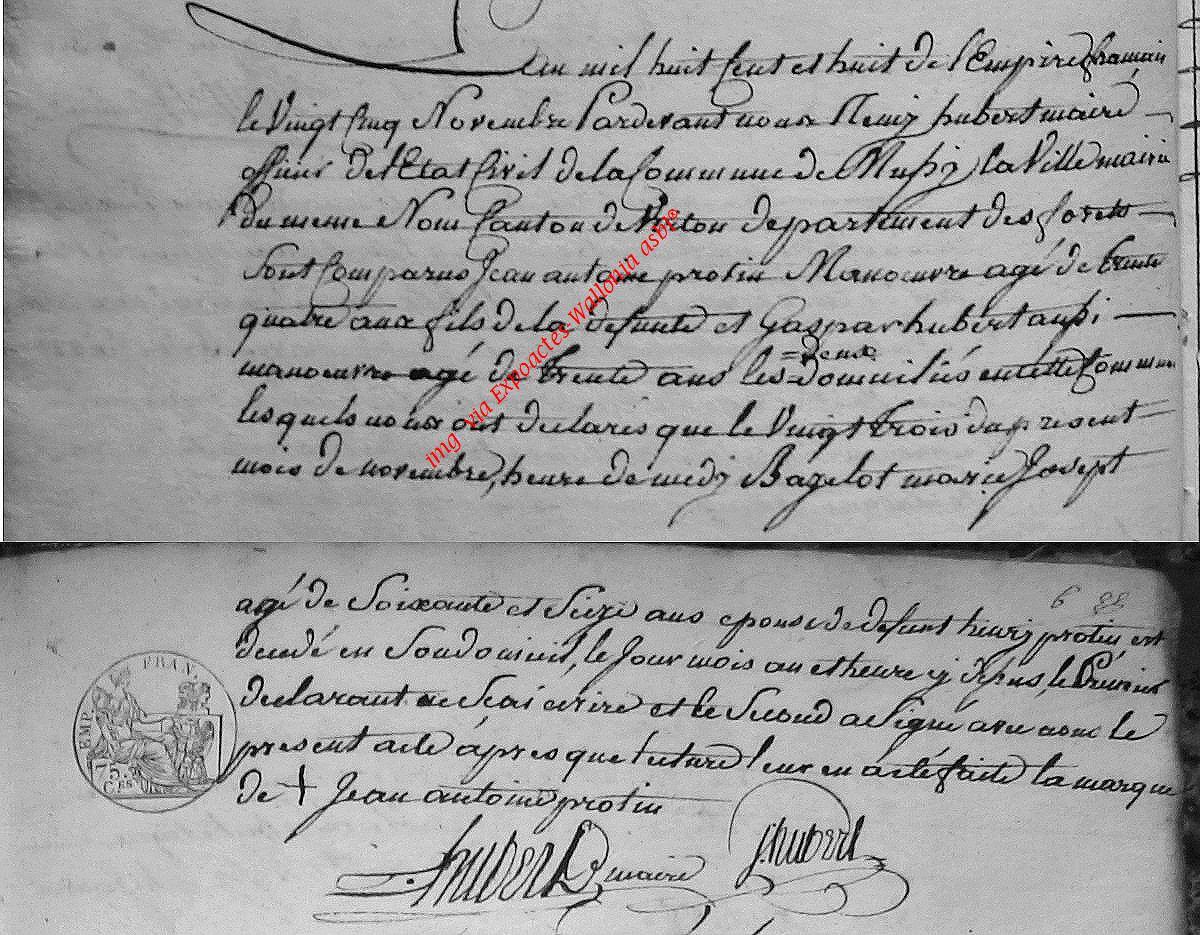 L'an mil huit Cent et huit de l'Empire francais
le Vingt Cinq Novembre Pardevant nous Remij hubert maire
officier de l'Etat Civil de la Commune de Mussy la Ville mairie
du meme Nom Canton de Virton departement des forets
Sont Comparus Jean antoine protin Manoeuvre agé de trente
quatre ans fils de la defunte et Gaspar hubert aussi
manoeuvre agé de trente ans les =deux= domiciliés en cette Commune
les quels nous ont declarés que le Vingt trois du present
mois de novembre, heure de midy Bagelot marie Josept
img via Expoactes-Wallonia asbl
6 98
agé de Soixante et Seize ans epouse de defunt henrij protin est
decedé en Son domicil, le Jour mois an et heure cy dessus, le Premier
declarant ne Scai ecrire et le Second a Signé avec nous le
present acte aprés que lecture leur en a eté faite la marque
de + Jean antoine protin
EMP. FRAN.
75. Ces
hubert maire
g:hubert